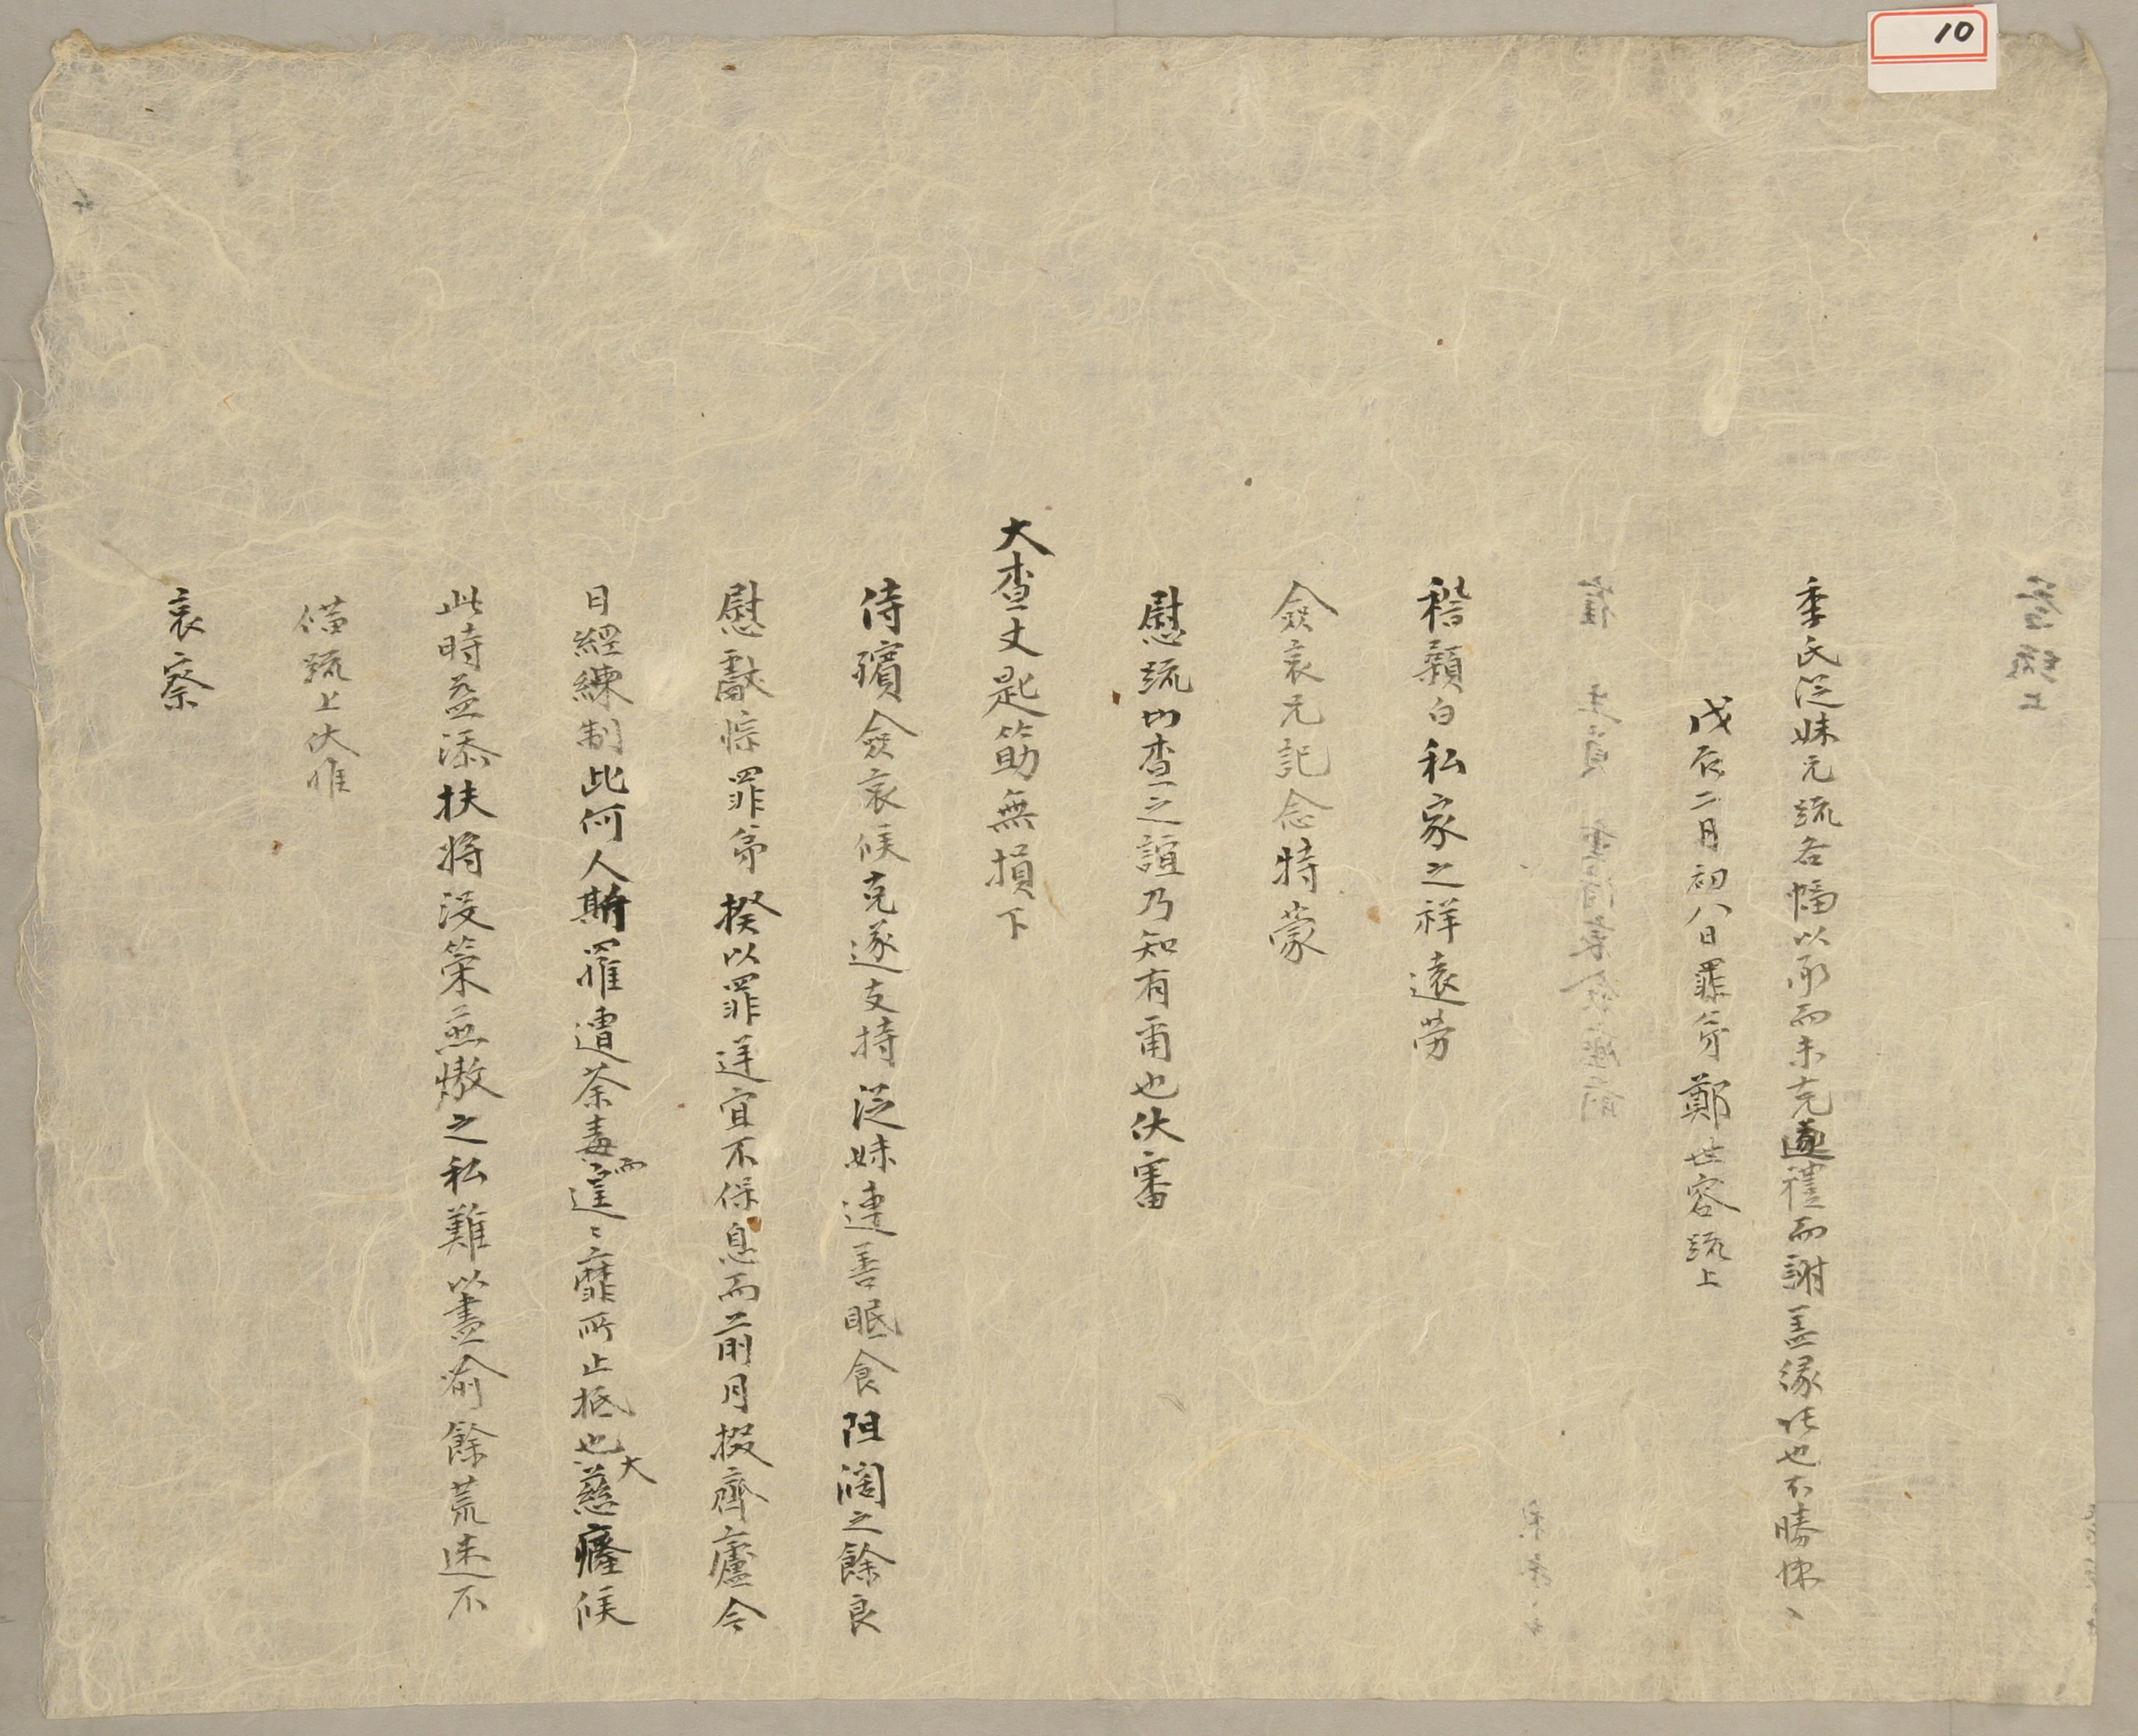 稽顙白私家之祥遠勞
僉哀元記念特蒙
慰疏切查之誼乃知有甭也伏審
大查丈匙筯無損下
侍殯僉哀候克遂支持從妹連善眠食阻濶之餘良
慰獻悰罪弟揆以罪逆宜不保息而前月掇齊廬今
日經練制此何人斯罹遭荼毒而遑〻靡所止抵也大慈癃候
此時益添扶將沒策煎熬之私難以盡喻餘荒迷不
備疏上伏惟
哀察
戊辰二月初八日罪弟鄭世容疏上
季氏從妹元疏各幅以承而未克遂禮而謝盖緣忙也不勝悚〻
10